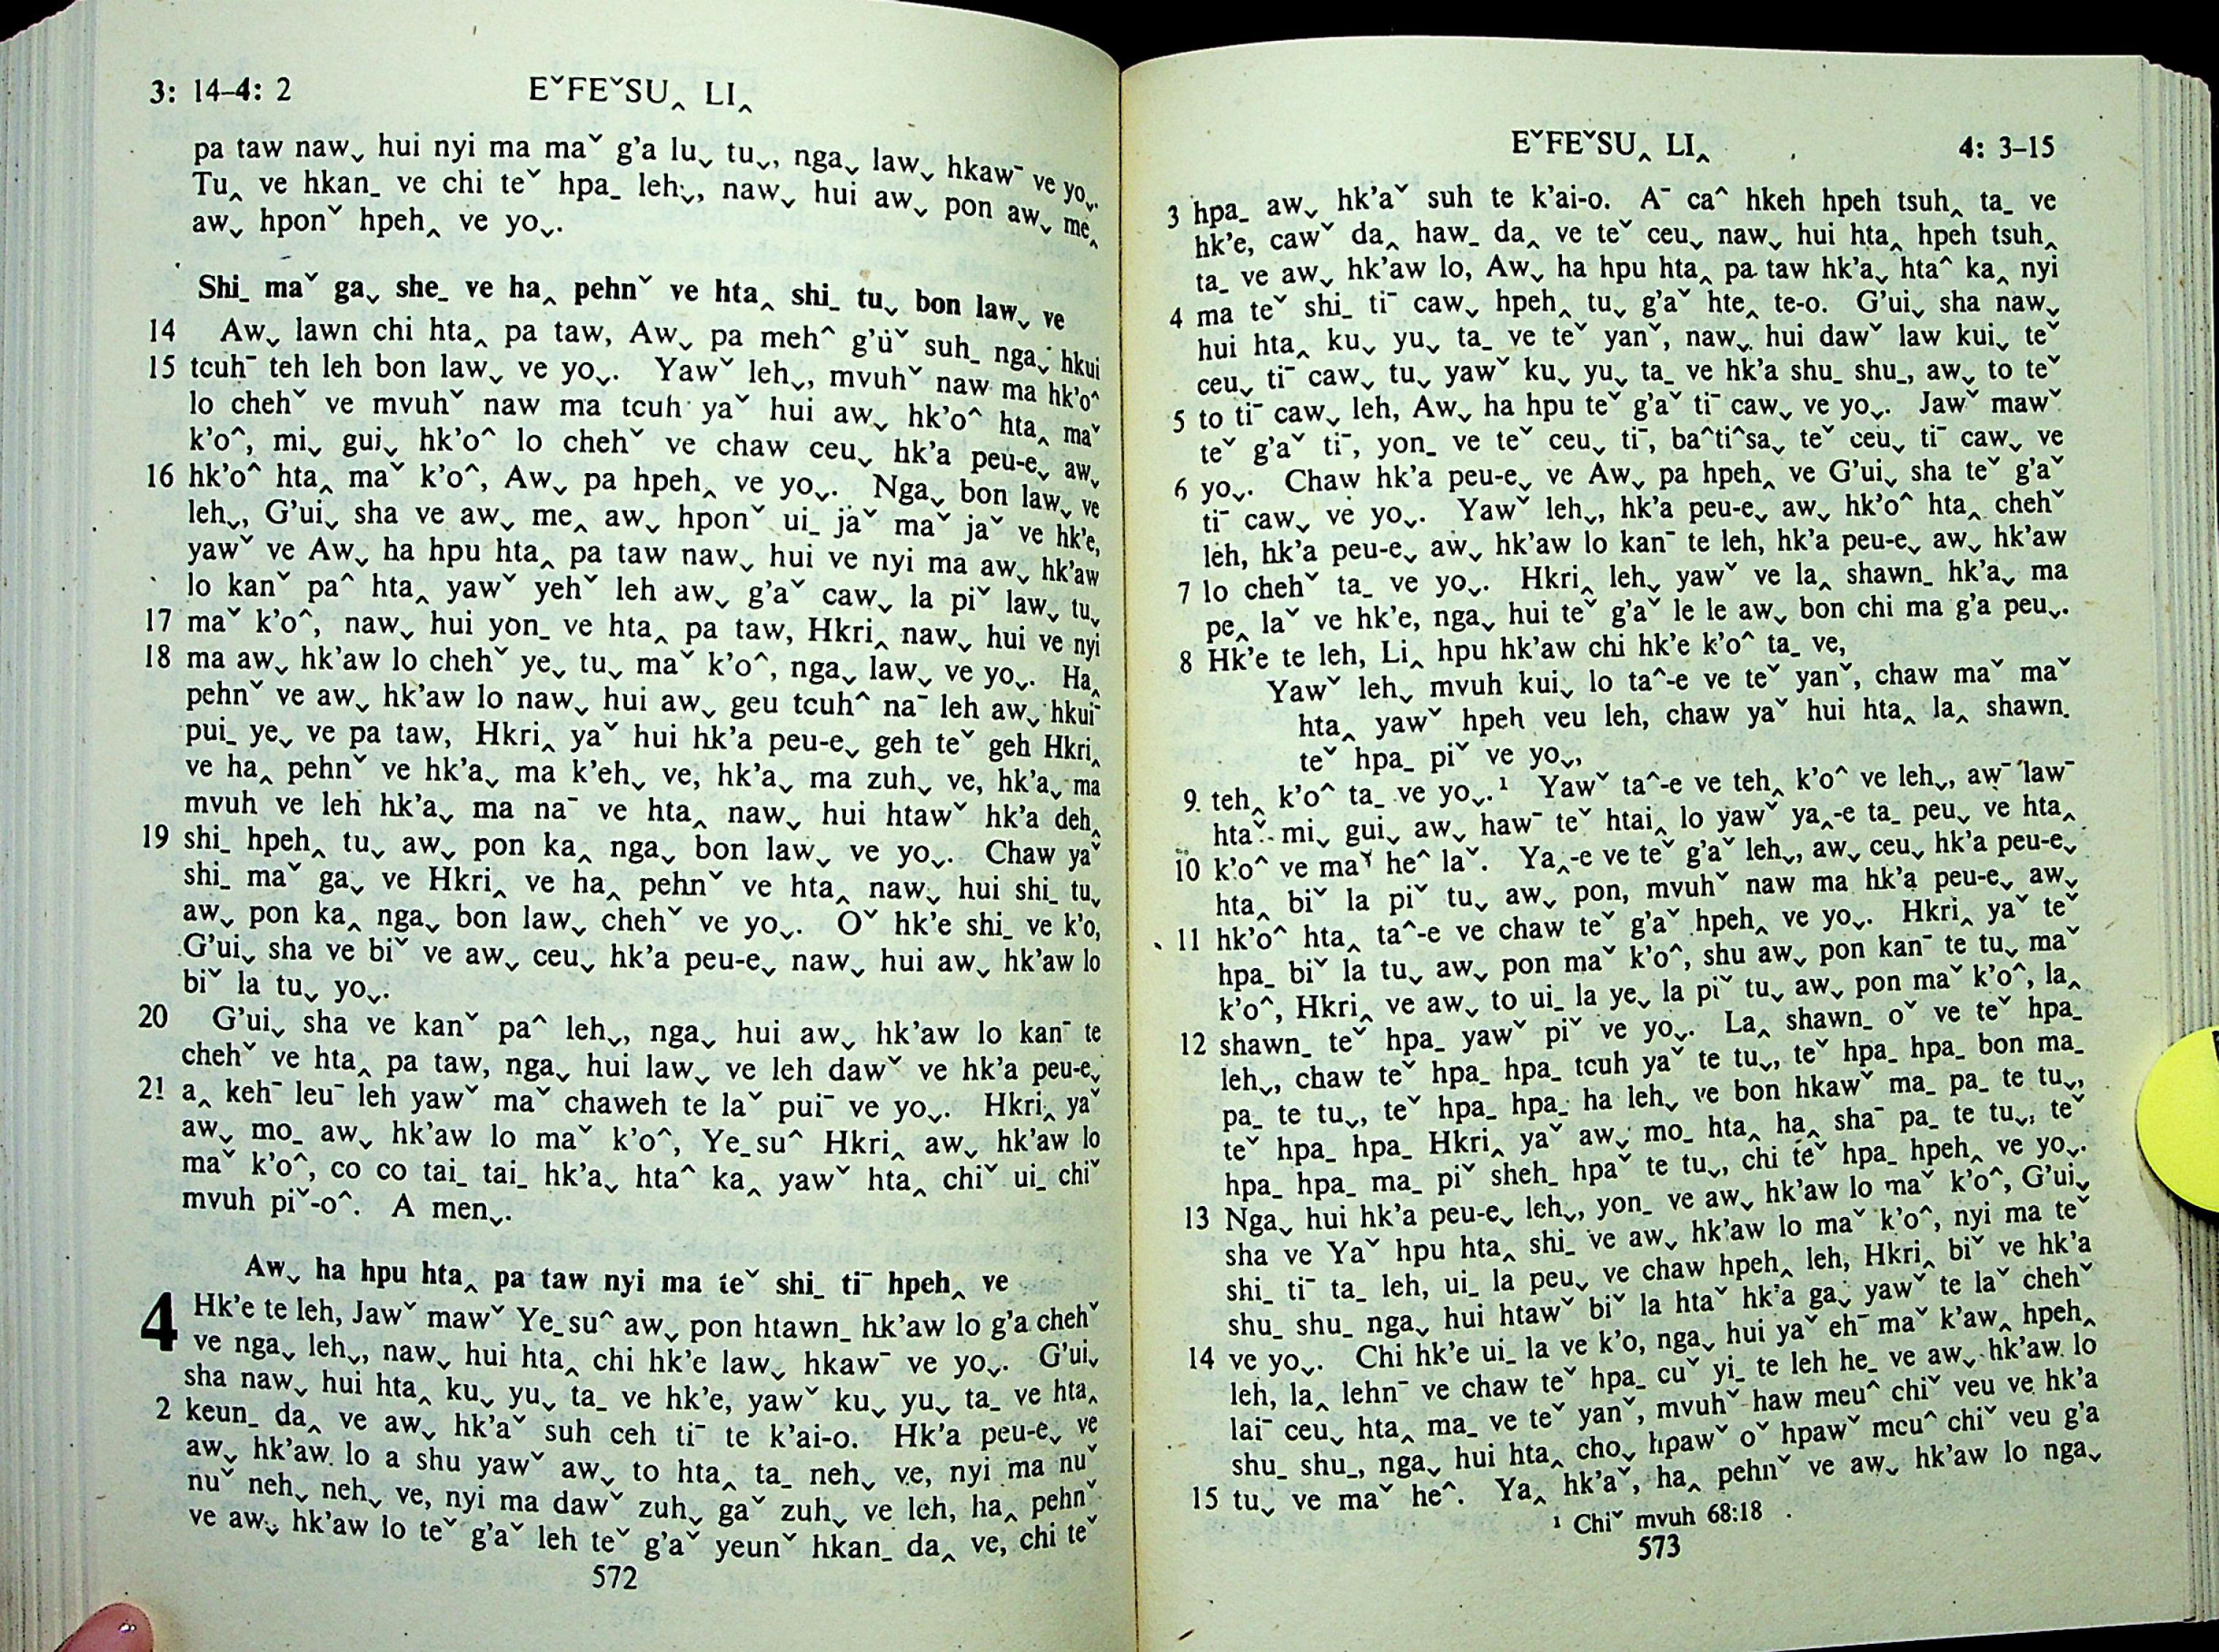 3: 14–4: 2
EˇFEˇSU‸ LI‸
pa taw naw˯ hui nyi ma maˇ g'a lu˯ tu˯, nga˯ law˯ hkawˉ ve yo˯.
Tu‸ ve hkan_ ve chi teˇ hpa_ leh˯, naw˯ hui aw˯ pon aw˯ me‸
aw˯ hponˇ hpeh‸ ve yo˯.
Shi_ maˇ ga˯ she_ ve ha‸ pehnˇ ve hta‸ shi_ tu˯ bon law˯ ve
14 Aw˯ lawn chi hta‸ pa taw, Aw˯ pa meh^ g'üˇ suh_ nga˯ hkui
15 tcuhˉ teh leh bon law˯ ve yo˯. Yawˇ leh˯, mvuhˇ naw ma hk'o^
lo chehˇ ve mvuhˇ naw ma tcuh yaˇ hui aw˯ hk'o^ hta‸ maˇ
k'o^, mi˯ gui˯ hk'o^ lo chehˇ ve chaw ceu˯ hk'a peu-e˯ aw˯
16 hk'o^ hta‸ maˇ k'o^, Aw˯ pa hpeh‸ ve yo˯. Nga˯ bon law˯ ve
leh˯, G'ui˯ sha ve aw˯ me‸ aw˯ hponˇ ui_ jaˇ maˇ jaˇ ve hk'e,
yawˇ ve Aw˯ ha hpu hta‸ pa taw naw˯ hui ve nyi ma aw˯ hk'aw
lo kanˇ pa^ hta‸ yawˇ yehˇ leh aw˯ g'aˇ caw˯ la piˇ law˯ tu˯
17 maˇ k'o^, naw˯ hui yon_ ve hta‸ pa taw, Hkri‸ naw˯ hui ve nyi
18 ma aw˯ hk'aw lo chehˇ ye˯ tu˯ maˇ k'o^, nga˯ law˯ ve yo˯. Ha‸
pehnˇ ve aw˯ hk'aw lo naw˯ hui aw˯ geu tcuh^ naˉ leh aw˯ hkuiˉ
pui_ ye˯ ve pa taw, Hkri‸ yaˇ hui hk'a peu-e˯ geh teˇ geh Hkri‸
ve ha‸ pehnˇ ve hk'a˯ ma k'eh˯ ve, hk'a˯ ma zuh˯ ve, hk'a˯ ma
mvuh ve leh hk'a˯ ma naˉ ve hta‸ naw˯ hui htawˇ hk'a deh‸
19 shi_ hpeh‸ tu˯ aw˯ pon ka‸ nga˯ bon law˯ ve yo˯. Chaw yaˇ
shi_ maˇ ga˯ ve Hkri‸ ve ha‸ pehnˇ ve hta‸ naw˯ hui shi_ tu˯
aw˯ pon ka‸ nga˯ bon law˯ chehˇ ve yo˯. Oˇ hk'e shi_ ve k'o,
G'ui˯ sha ve biˇ ve aw˯ ceu˯ hk'a peu-e˯ naw˯ hui aw˯ hk'aw lo
biˇ la tu˯ yo˯.
20 G'ui˯ sha ve kanˇ pa^ leh˯, nga˯ hui aw˯ hk'aw lo kanˉ te
chehˇ ve hta‸ pa taw, nga˯ hui law˯ ve leh dawˇ ve hk'a peu-e˯
21 a‸ kehˉ leuˉ leh yawˇ maˇ chaweh te laˇ puiˉ ve yo˯. Hkri‸ yaˇ
aw˯ mo_ aw˯ hk'aw lo maˇ k'o^, Ye_su^ Hkri‸ aw˯ hk'aw lo
maˇ k'o^, co co tai_ tai_ hk'a˯ hta^ ka‸ yawˇ hta‸ chiˇ ui_ chiˇ
mvuh piˇ-o^. A men˯.
Aw˯ ha hpu hta‸ pa taw nyi ma teˇ shi_ tiˉ hpeh‸ ve
4 Hk'e te leh, Jawˇ mawˇ Ye_su^ aw˯ pon htawn_ hk'aw lo g'a chehˇ
ve nga˯ leh˯, naw˯ hui hta‸ chi hk'e law˯ hkawˉ ve yo˯. G'ui˯
sha naw˯ hui hta‸ ku˯ yu˯ ta_ ve hk'e, yawˇ ku˯ yu˯ ta_ ve hta‸
2 keun_ da‸ ve aw˯ hk'aˇ suh ceh tiˉ te k'ai-o. Hk'a peu-e˯ ve
aw˯ hk'aw lo a shu yawˇ aw˯ to hta‸ ta_ neh˯ ve, nyi ma nuˇ
nuˇ neh˯ neh˯ ve, nyi ma dawˇ zuh˯ gaˇ zuh˯ ve leh, ha‸ pehnˇ
ve aw˯ hk'aw lo teˇ g'aˇ leh teˇ g'aˇ yeunˇ hkan_ da‸ ve, chi teˇ
572
EˇFEˇSU‸ LI‸
4: 3–15
3 hpa_ aw˯ hk'aˇ suh te k'ai-o. Aˉ ca^ hkeh hpeh tsuh‸ ta_ ve
hk'e, cawˇ da‸ haw_ da‸ ve teˇ ceu˯ naw˯ hui hta‸ hpeh tsuh‸
ta_ ve aw˯ hk'aw lo, Aw˯ ha hpu hta‸ pa taw hk'a˯ hta^ ka‸ nyi
4 ma teˇ shi_ tiˉ caw˯ hpeh‸ tu˯ g'aˇ hte‸ te-o. G'ui˯ sha naw˯
hui hta‸ ku˯ yu˯ ta_ ve teˇ yanˇ, naw˯ hui dawˇ law kui˯ teˇ
ceu˯ tiˉ caw˯ tu˯ yawˇ ku˯ yu˯ ta_ ve hk'a shu_ shu_, aw˯ to teˇ
5 to tiˉ caw˯ leh, Aw˯ ha hpu teˇ g'aˇ tiˉ caw˯ ve yo˯. Jawˇ mawˇ
teˇ g'aˇ tiˉ, yon_ ve teˇ ceu˯ tiˉ, ba^ti^sa˯ teˇ ceu˯ tiˉ caw˯ ve
6 yo˯. Chaw hk'a peu-e˯ ve Aw˯ pa hpeh‸ ve G'ui˯ sha teˇ g'aˇ
tiˉ caw˯ ve yo˯. Yawˇ leh˯, hk'a peu-e˯ aw˯ hk'o^ hta‸ chehˇ
leh, hk'a peu-e˯ aw˯ hk'aw lo kanˉ te leh, hk'a peu-e˯ aw˯ hk'aw
7 lo chehˇ ta_ ve yo˯. Hkri‸ leh˯ yawˇ ve la‸ shawn_ hk'a˯ ma
pe‸ laˇ ve hk'e, nga˯ hui teˇ g'aˇ le le aw˯ bon chi ma g'a peu˯.
8 Hk'e te leh, Li‸ hpu hk'aw chi hk'e k'o^ ta_ ve,
Yawˇ leh˯ mvuh kui˯ lo ta^-e ve teˇ yanˇ, chaw maˇ maˇ
hta‸ yawˇ hpeh veu leh, chaw yaˇ hui hta‸ la‸ shawn_
teˇ hpa_ piˇ ve yo˯,
9 teh‸ k'o^ ta_ ve yo˯.¹ Yawˇ ta^-e ve teh‸ k'o^ ve leh˯, awˉ lawˉ
htaˇ mi˯ gui˯ aw˯ hawˉ teˇ htai‸ lo yawˇ ya‸-e ta_ peu˯ ve hta‸
10 k'o^ ve maˇ he^ laˇ. Ya‸-e ve teˇ g'aˇ leh˯, aw˯ ceu˯ hk'a peu-e˯
hta‸ biˇ la piˇ tu˯ aw˯ pon, mvuhˇ naw ma hk'a peu-e˯ aw˯
11 hk'o^ hta‸ ta^-e ve chaw teˇ g'aˇ hpeh‸ ve yo˯. Hkri‸ yaˇ teˇ
hpa_ biˇ la tu˯ aw˯ pon maˇ k'o^, shu aw˯ pon kanˉ te tu˯ maˇ
k'o^, Hkri‸ ve aw˯ to ui_ la ye˯ la piˇ tu˯ aw˯ pon maˇ k'o^, la‸
12 shawn_ teˇ hpa_ yawˇ piˇ ve yo˯. La‸ shawn_ oˇ ve teˇ hpa_
leh˯, chaw teˇ hpa_ hpa_ tcuh yaˇ te tu˯, teˇ hpa_ hpa_ bon ma_
pa_ te tu˯, teˇ hpa_ hpa_ ha leh˯ ve bon hkawˇ ma_ pa_ te tu˯,
teˇ hpa_ hpa_ Hkri‸ yaˇ aw˯ mo_ hta‸ ha‸ shaˉ pa_ te tu˯, teˇ
hpa_ hpa_ ma_ piˇ sheh_ hpaˇ te tu˯, chi teˇ hpa_ hpeh‸ ve yo˯.
13 Nga˯ hui hk'a peu-e˯ leh˯, yon_ ve aw˯ hk'aw lo maˇ k'o^, G'ui˯
sha ve Yaˇ hpu hta‸ shi_ ve aw˯ hk'aw lo maˇ k'o^, nyi ma teˇ
shi_ tiˉ ta_ leh, ui_ la peu˯ ve chaw hpeh‸ leh, Hkri‸ biˇ ve hk'a
shu_ shu_ nga˯ hui htawˇ biˇ la htaˇ hk'a ga˯ yawˇ te laˇ chehˇ
14 ve yo˯. Chi hk'e ui_ la ve k'o, nga˯ hui yaˇ ehˉ maˇ k'aw‸ hpeh‸
leh, la‸ lehnˉ ve chaw teˇ hpa_ cuˇ yi_ te leh he_ ve aw˯ hk'aw lo
laiˉ ceu˯ hta‸ ma_ ve teˇ yanˇ, mvuhˇ haw meu^ chiˇ veu ve hk'a
shu_ shu_, nga˯ hui hta‸ cho˯ hpawˇ oˇ hpawˇ meu^ chiˇ veu g'a
15 tu˯ ve maˇ he^. Ya‸ hk'aˇ, ha‸ pehnˇ ve aw˯ hk'aw lo nga˯
¹ Chiˇ mvuh 68:18
573